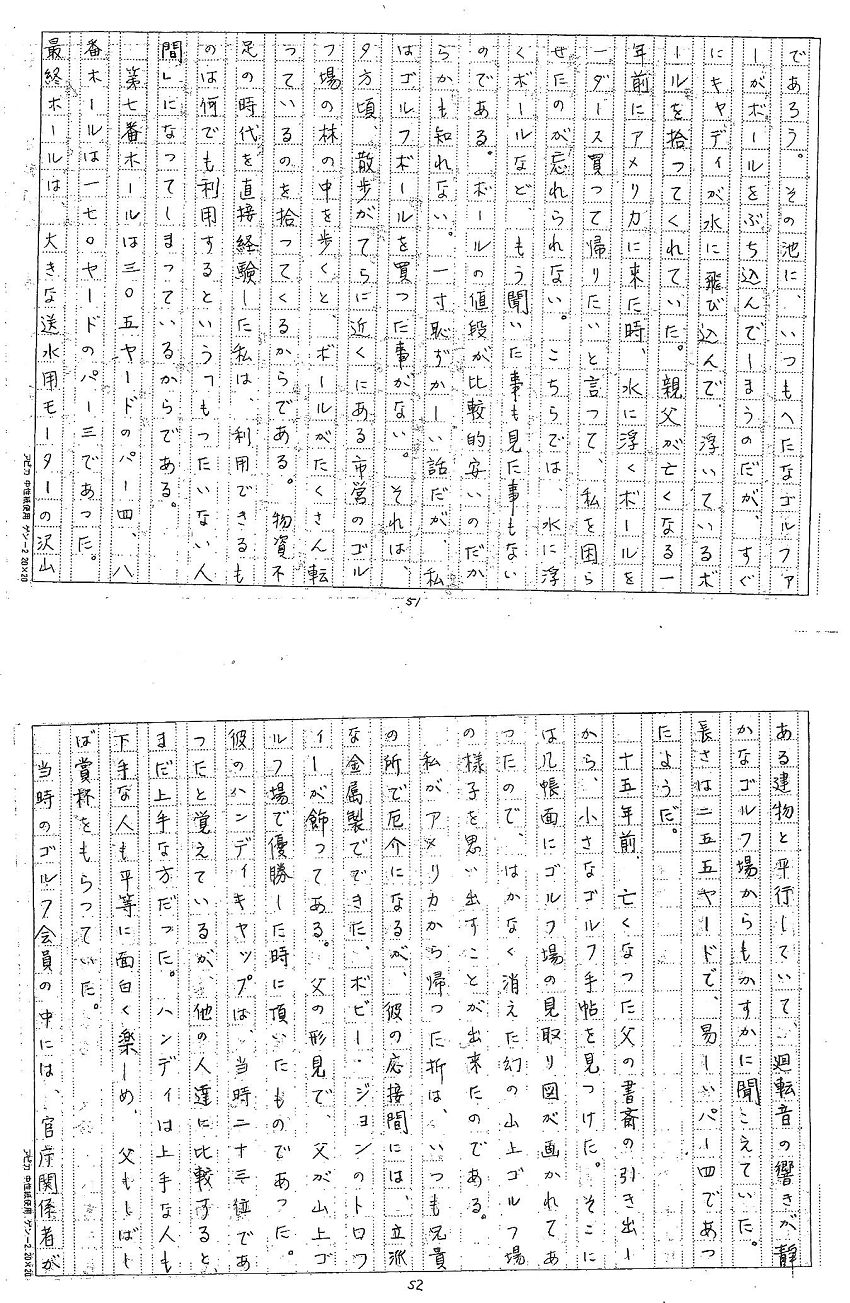 であろう。その池に、いつもへたなゴルファ
ーがボールをぶち込んでしまうのだが、すぐ
にキャディが水に飛び込んで、浮いているボ
ールを拾ってくれていた。親父が亡くなる一
年前にアメリカに来た時、水に浮くボールを
一ダース買って帰りたいと言って、私を困ら
せたのが忘れられない。こちらでは、水に浮
くボールなど、もう聞いた事も見た事もない
のである。ボールの値段が比較的安いのだか
らかも知れない。一寸恥ずかしい話だが、私
はゴルフボールを買った事がない。それは、
夕方頃、散歩がてらに近くにある市営のゴル
フ場の林の中を歩くと、ボールがたくさん転
っているのを拾ってくるからである。物資不
足の時代を直接経験した私は、利用できるも
のは何でも利用するというつもったいない人
間」になってしまっているからである。
第七番ホールは三〇五ヤードのパー四、八
番ホールは一七〇ヤードのパー三であった。
最終ホールは、大きな送水用モーターの沢山
アピカ 中性紙使用 ゲンー2 20×20
51
ある建物と平行していて、廻転音の響きが静
かなゴルフ場からもかすかに聞こえていた。
長さは二五五ヤードで、易しいパー四であっ
たようだ。
十五年前、亡くなった父の書斎の引き出し
から、小さなゴルフ手帖を見つけた。そこに
は几帳面にゴルフ場の見取り図が画かれてあ
ったので、はかなく消えた幻の山上ゴルフ場
の様子を思い出すことが出来たのである。
私がアメリカから帰った折は、いつも兄貴
の所で厄介になるが、彼の応接間には、立派
な金属製でできた、ボビー・ジョンのトロフ
ィーが飾ってある。父の形見で、父が山上ゴ
ルフ場で優勝した時に頂いたものであった。
彼のハンディキャップは、当時二十三位であ
ったと覚えているが、他の人達に比較すると、
まだ上手な方だった。ハンディは上手な人も
下手な人も平等に面白く楽しめ、父もしばし
ば賞杯をもらっていた。
当時のゴルフ会員の中には、官庁関係者が
アピカ 中性紙使用 ゲンー2 20×20
52